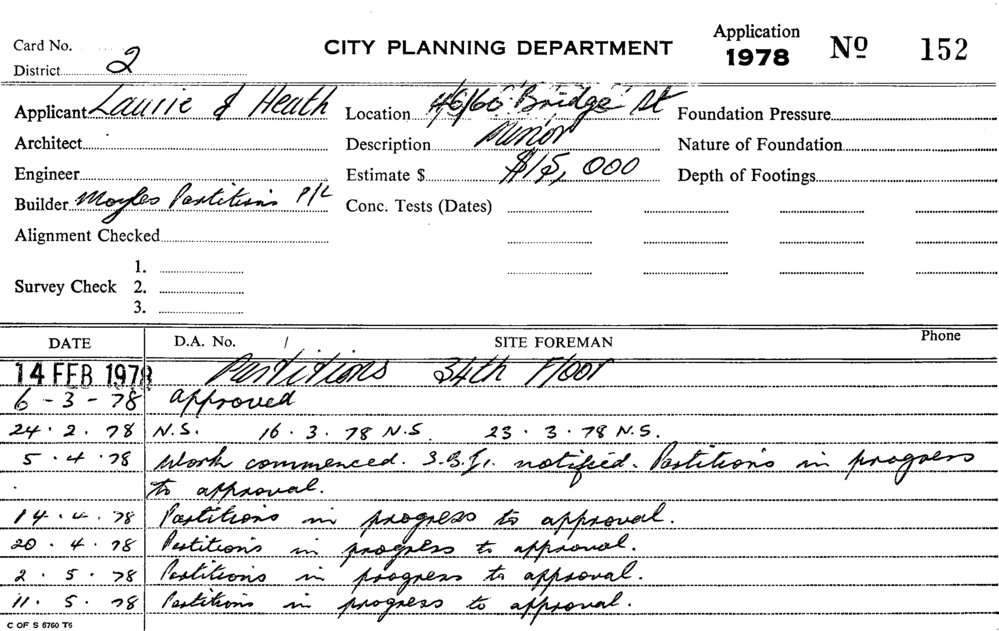 Card No.
District 2
CITY PLANNING DEPARTMENT
Application
1978 No 152
Applicant Laurie & Heath Location 46/60 Bridge St Foundation Pressure
Architect Description Minor Nature of Foundation
Engineer Estimate $ $15,000 Depth of Footings
Builder Moyles Partitions P/L Conc. Tests (Dates)
Alignment Checked
1.
Survey Check 2.
3.
DATE D.A. No. / SITE FOREMAN Phone
14 FEB 1978 Partitions 34th Floor
6 - 3 - 78 approved
24 . 2 . 78 N.S. 16 . 3 . 78 N.S. 23 . 3 . 78 N.S.
5 . 4 . 78 Work commenced. notified. Partitions in progress
to approval.
14 . 4 . 78 Partitions in progress to approval.
20 . 4 . 78 Partitions in progress to approval.
2 . 5 . 78 Partitions in progress to approval.
11 . 5 . 78 Partitions in progress to approval.
C OF S 6760 T6